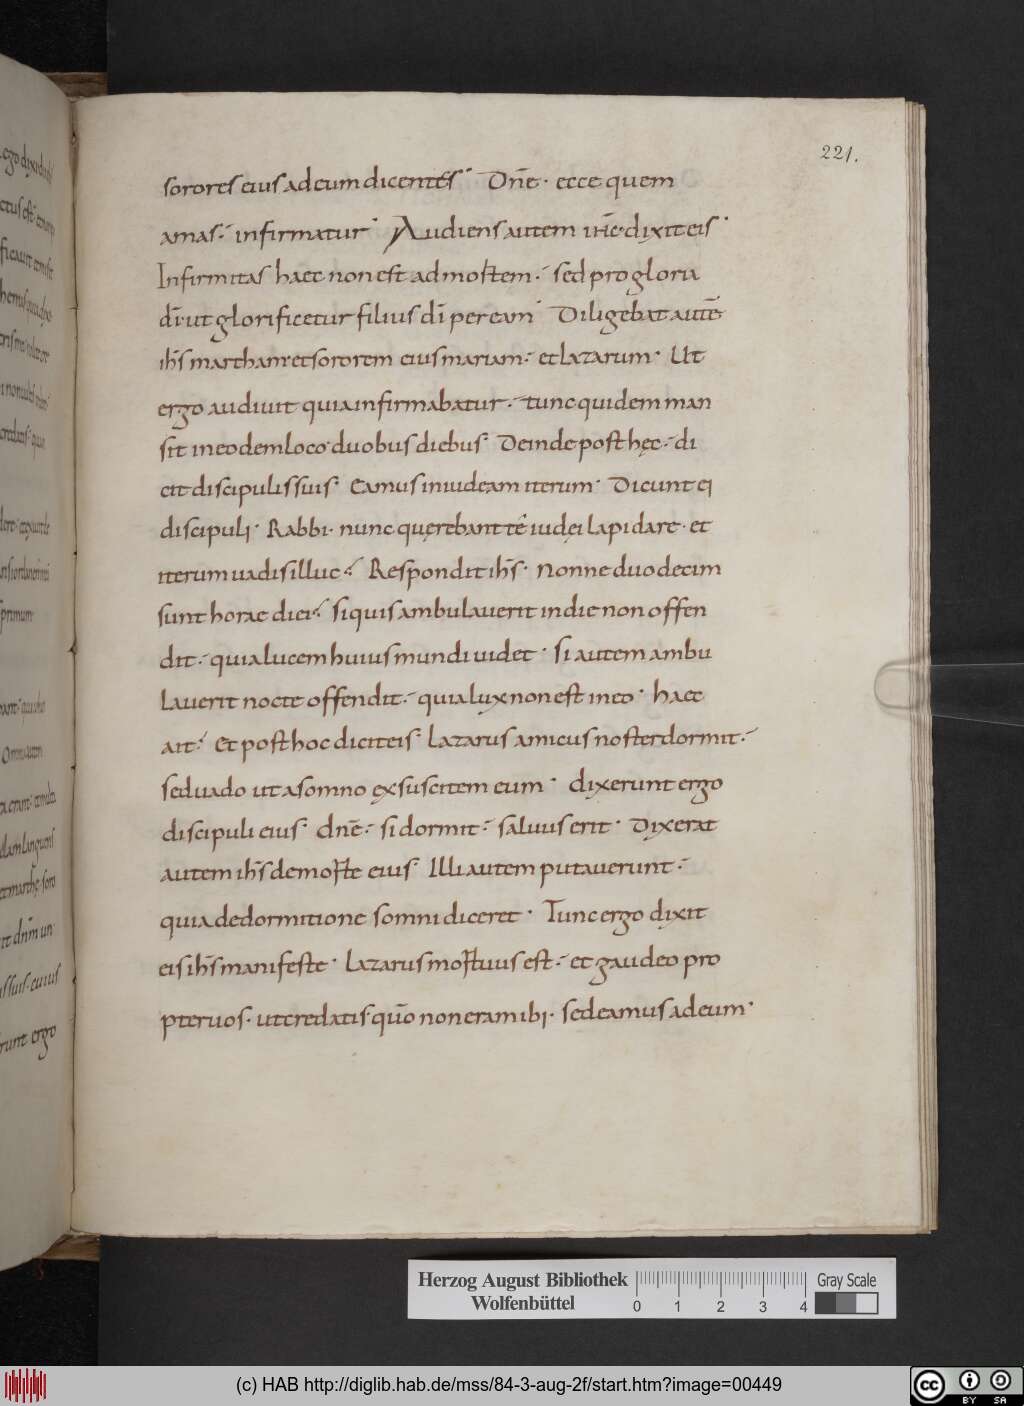 221.
sorores eius ad eum dicentes. Dn̄e. ecce quem
amas. infirmatur. Audiens autem ih̄c. dixit eis.
Infirmitas haec non est ad mortem. sed pro gloria
dī. ut glorificetur filius dī per eam. Diligebat autē
ih̄s martham. et sororem eius mariam. et lazarum. Ut
ergo audivit quia infirmabatur. tunc quidem man
sit in eodem loco. duobus diebus. Deinde post hęc. di
cit discipulis suis. Eamus in iudeam iterum. Dicunt ei
discipuli. Rabbi. nunc querebant te iudei lapidare. et
iterum uadis illuc. Respondit ih̄s. Nonne duodecim
sunt horae diei. si quis ambulaverit in die non offen
dit. quia lucem huius mundi uidet. si autem ambu
laverit nocte offendit. quia lux non est in eo. haec
ait. Et post hoc dicit eis. Lazarus amicus noster dormit.
sed uado ut a somno exsuscitem eum. dixerunt ergo
discipuli eius. dn̄e. si dormit. salvus erit. Dixerat
autem ih̄s de morte eius. Illi autem putaverunt.
quia de dormitione somni diceret. Tunc ergo dixit
eis ih̄s manifeste. Lazarus mortuus est. et gaudeo pro
pter uos. ut credatis. quō non eram ibi. sed eamus ad eum.
Herzog August Bibliothek
Wolfenbüttel
0 1 2 3 4
Gray Scale
(c) HAB http://diglib.hab.de/mss/84-3-aug-2f/start.htm?image=00449
cc BY SA